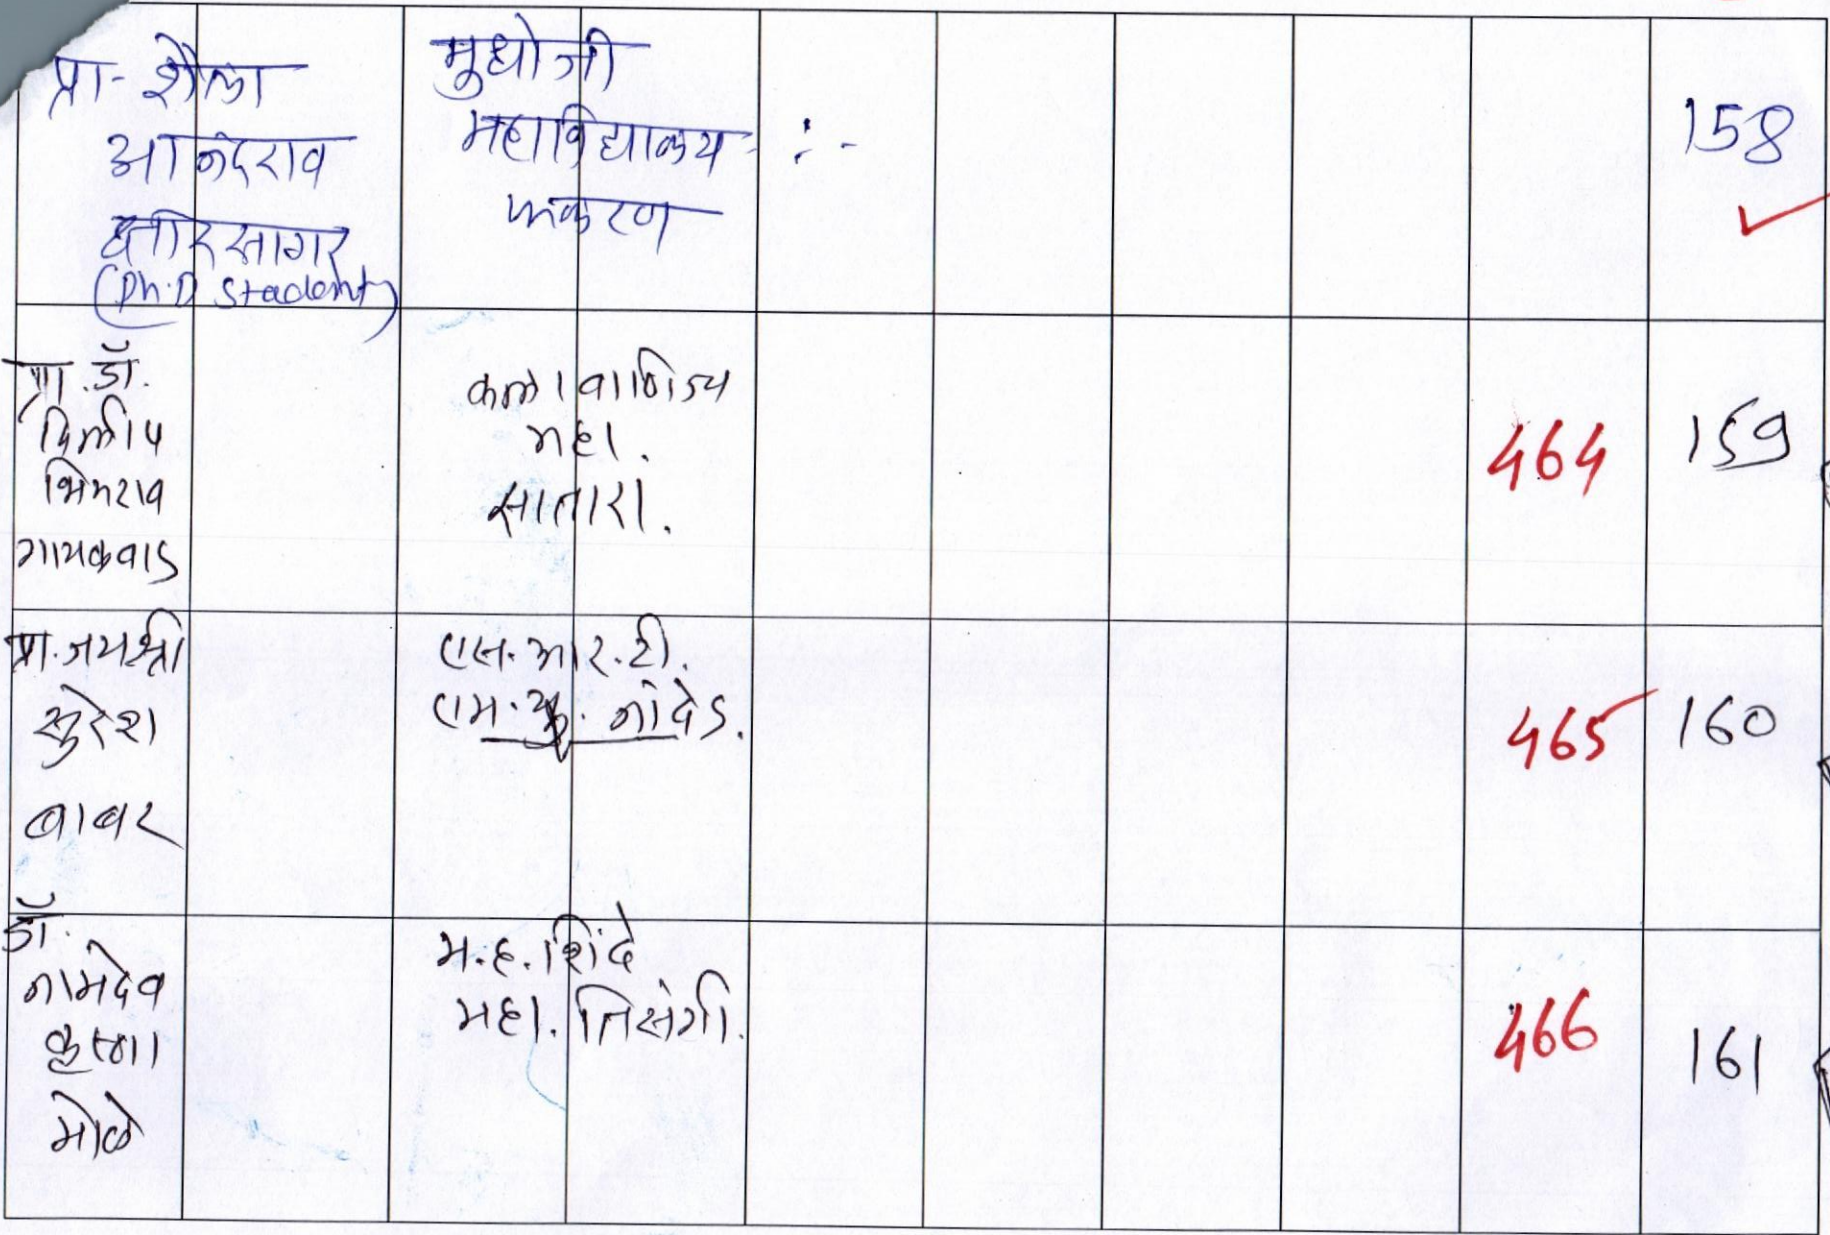 प्रा- शैला
आनंदराव
क्षीरसागर
(Ph.D Student)
मुधोजी
महाविद्यालय :-
फलटण
158
प्रा. डॉ.
दिलीप
भिमराव
गायकवाड
कला वाणिज्य
महा.
सातारा.
464
159
प्रा. जयश्री
सुरेश
बाबर
एस. आर. टी.
एम. यु. नांदेड.
465
160
डॉ.
नामदेव
कृष्णा
मोळे
म. ह. शिंदे
महा. तिसंगी.
466
161